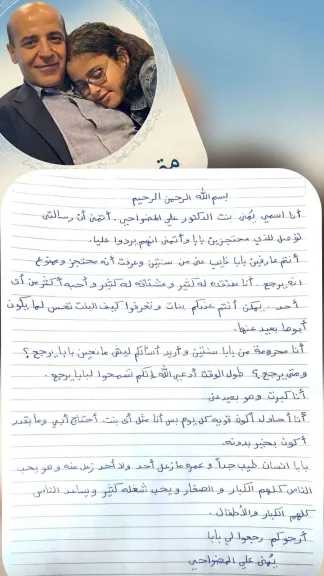 بسم الله الرحمن الرحيم
أنا اسمي يُمنى بنت الدكتور علي المضواحي. أتمنى أن رسالتي
توصل للذي محتجزين بابا وأتمنى انهم يردوا عليا.
أنتم عارفين بابا غايب عني من سنتين وعرفت أنه محتجز وممنوع
انه يرجع. أنا مفتقده له كثير ومشتاقه له كثير وأحبه أكثر من أي
أحد.. يمكن أنتم عندكم بنات وتعرفوا كيف البنت تحس لما يكون
أبوها بعيد عنها.
أنا محرومة من بابا سنتين وأريد أسألكم ليش مانعين بابا يرجع؟
ومتى يرجع؟ طول الوقت أدعي الله إنكم تسمحوا لبابا يرجع.
أنا كبرت وهو بعيد عني
أنا أحاول أكون قويه كل يوم بس أنا مثل أي بنت. أحتاج أبي وما بقدر
أكون بخير بدونه.
بابا انسان طيب جداً وعمره ما زعل أحد ولا أحد زعل منه وهو يحب
الناس كلهم الكبار والصغار ويحب شغله كثير ويساعد الناس
كلهم الكبار والأطفال.
أرجوكم رجعوا لي بابا
يُمنى علي المضواحي